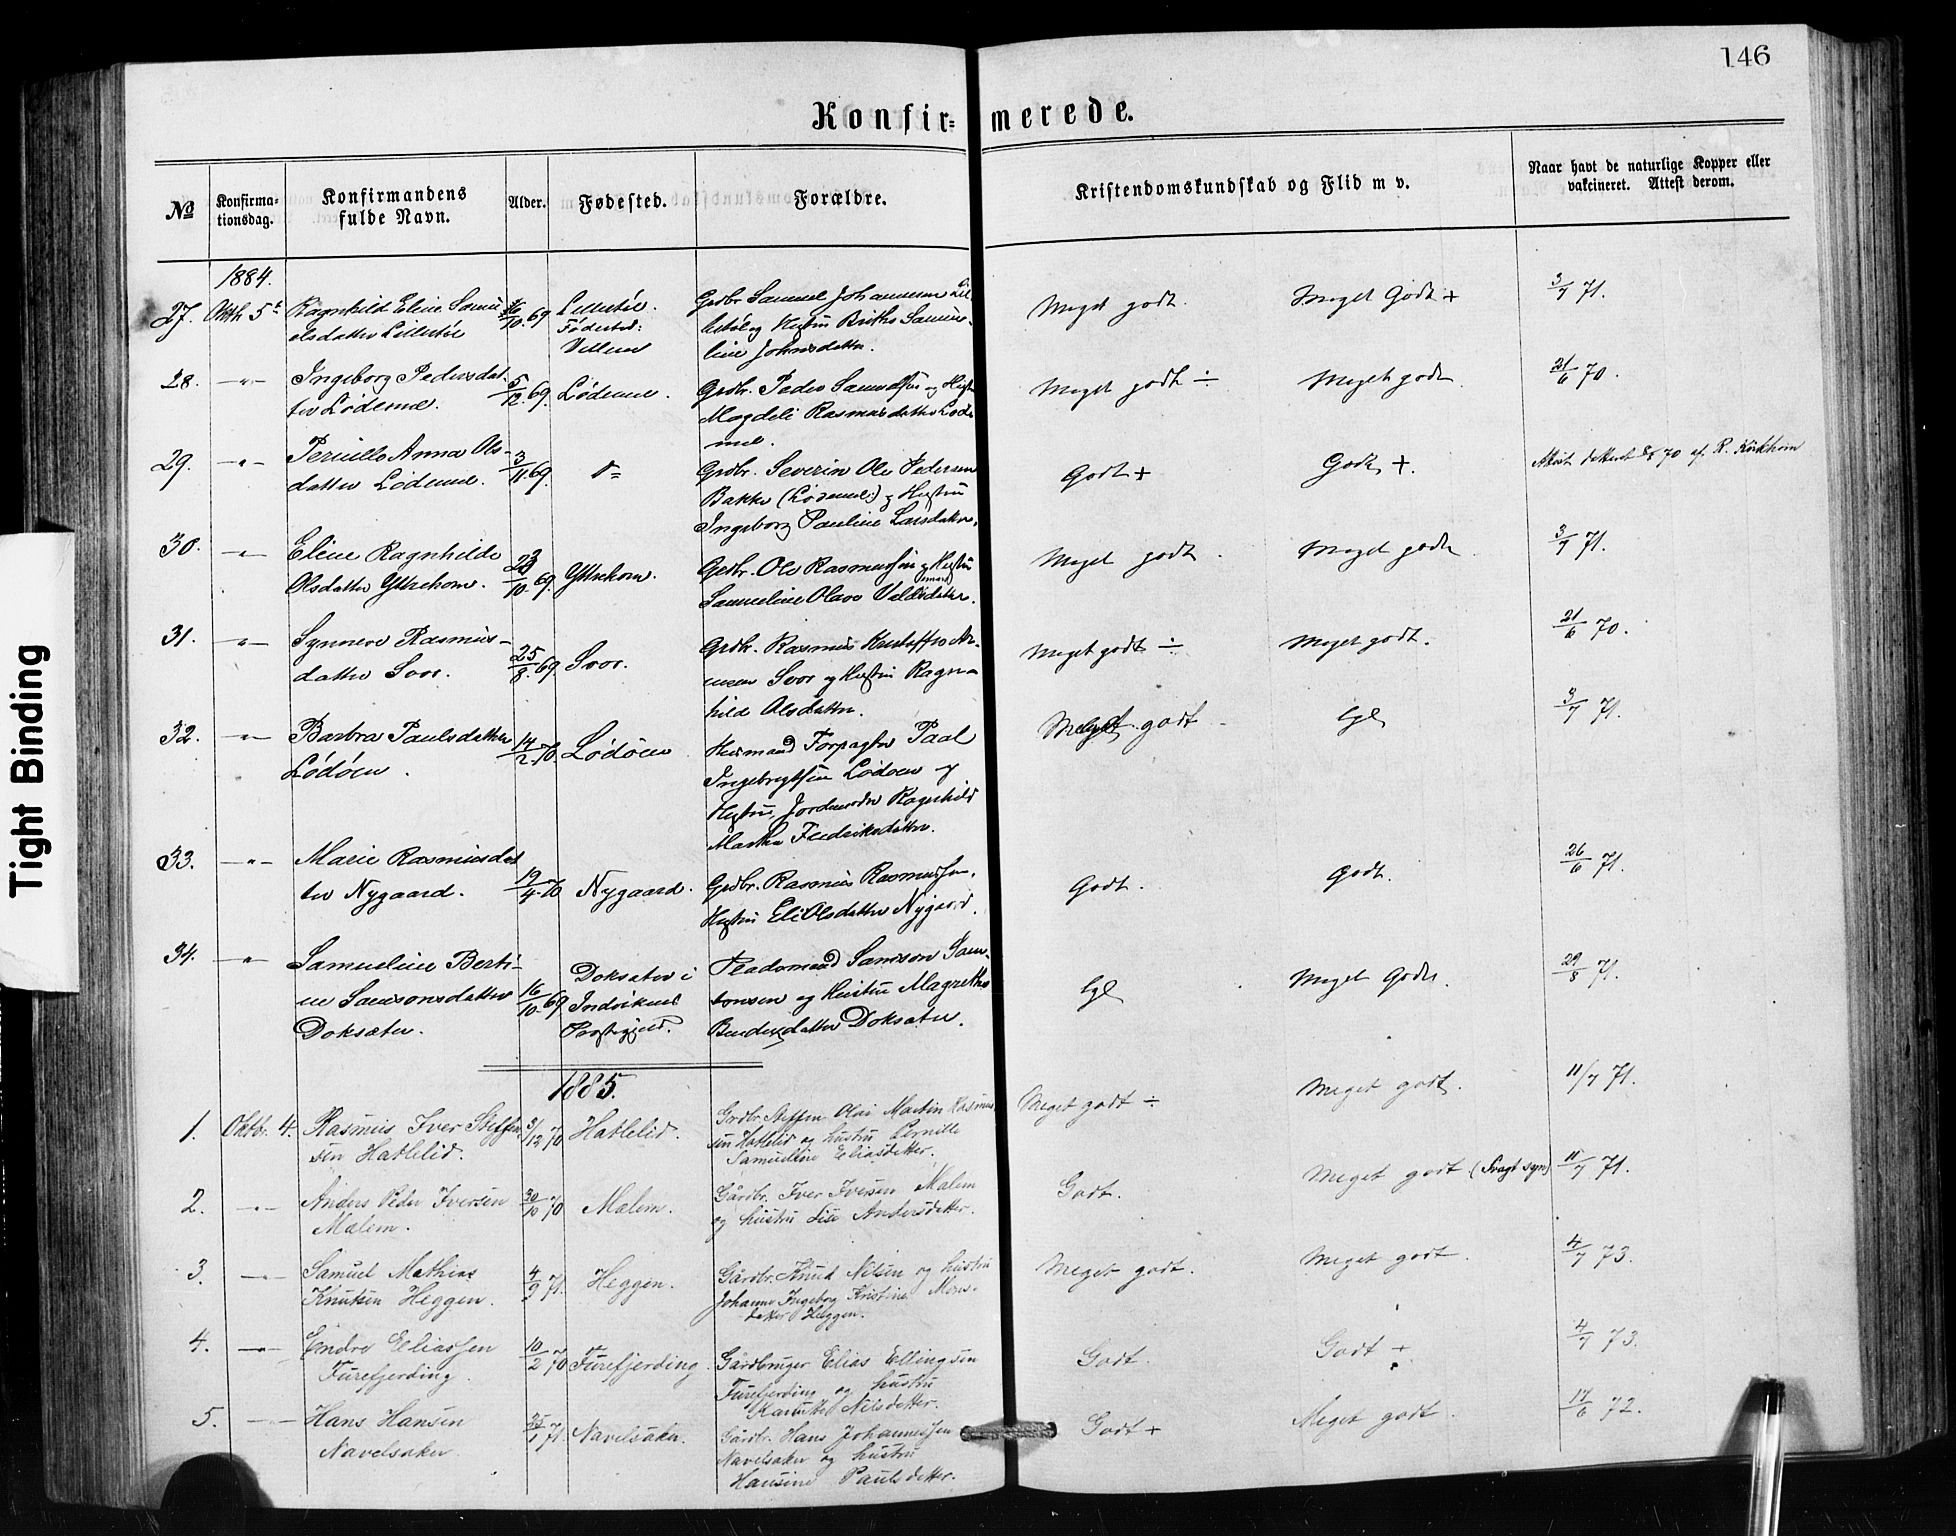 146
Konfir= merede.
No
Konfirma-
tionsdag.
Konfirmandens
fulde Navn.
Alder.
Fødested.
Forældre.
Kristendomskundskab og Flid m v.
Naar havt de naturlige Kopper eller
vakcineret. Attest derom.
1884.
27. Oktb 5te Ragnhild Eline Samu
elsdatter Lillestøl
16/10 69
Lillestøl.
Fødested:
Grdbr. Samuel Johannesen Lil
lestøl og Hustru Brithe Samue-
line Johnsdatter.
Meget godt.
Meget Godt +
3/7 71.
28. -"- Ingeborg Pedersdat-
ter Lødemel.
5/12 69.
Lødemel.
Grdbr. Peder Samuelsen og Hustru
Magdeli Rasmusdatter Løde
mel.
Meget godt ÷
Meget godt.
21/6 70.
29. -"- Pernille Anna Ols-
datter Lødemel.
3/11 69.
Grdbr. Severin Ole Pedersen
Bakke (Lødemel:) og Hustru
Ingeborg Pauline Larsdatter.
Godt +
Godt +.
Attest dateret 8/8 70 af R. Kirkhorn
30. -"- Eline Ragnhilde
Olsdatter Yttrehorn.
23/10 69.
Yttrehorn.
Grdbr. Ole Rasmussen og Hustru
Samueline Olave
Meget godt.
Meget godt.
3/7 71.
31. -"- Synneve Rasmus-
datter Svor.
25/8 69.
Svor.
Grdbr. Rasmus Kristoffer An-
Svor og Hustru Ragn-
hild Olsdatter.
Meget godt ÷
Meget godt.
21/6 70.
32. -"- Barbra Paulsdatter
Lødøen.
14/2 70
Lødøen
Husmand Forpagter Paal
Ingebrigtsen Lødøen og
Hustru, Jordemoder Ragnhild
Marthe Fredriksdatter.
Meget godt
lgl
3/7 71.
33. -"- Marie Rasmusdat
ter Nygaard.
19/4 70
Nygaard.
Grdbr. Rasmus Rasmussen.
Hustru Eli Olsdatter Nygaard.
Godt.
Godt.
26/6 71.
34. -"- Samueline Berti-
ne Samsonsdatter
Doksæter.
16/10 69
Doksæter i
Indvikens
Præstegjeld.
Pladsmand Samson Sam-
sonsen og Hustru Magrethe
Bendixdatter Doksæter.
lgl
Meget Godt.
29/8 71.
1885.
1. Oktbr. 4. Rasmus Iver Steffen
sen Hatlelid.
3/12 70
Hatlelid.
Grdbr. Steffen Olai Martin Rasmus
sen Hatlelid og hustru Pernille
Samueline Eliasdetter.
Meget godt ÷
Meget godt.
11/7 71.
2. -"- Anders Peder Iversen
Mælem.
30/10 70
Mælem.
Gårdbr. Iver Iversen Mælem
og hustru Lise Andersdetter.
Godt.
Meget godt (Svagt syn)
11/7 71.
3. -"- Samuel Mathias
Knutsen Heggen.
4/9 71.
Heggen.
Gårdbr. Knud Nilsen og hustru
Johanne Ingeborg Kristine Mons-
detter Heggen.
Meget godt.
Meget godt.
4/7 73.
4. -"- Endre Eliassen
Furefjerding.
10/2 70
Furefjerding.
Gårdbruger Elias Ellingsen
Furefjerding og hustru
Nilsdetter.
Godt.
Godt ÷
4/7 73.
5. -"- Hans Hansen
Navelsaker.
25/1 71.
Navelsaker.
Gårdbr. Hans Johannessen
Navelsaker og hustru
Hansine Paulsdetter.
Godt +
Meget godt.
17/6 72.
Tight Binding